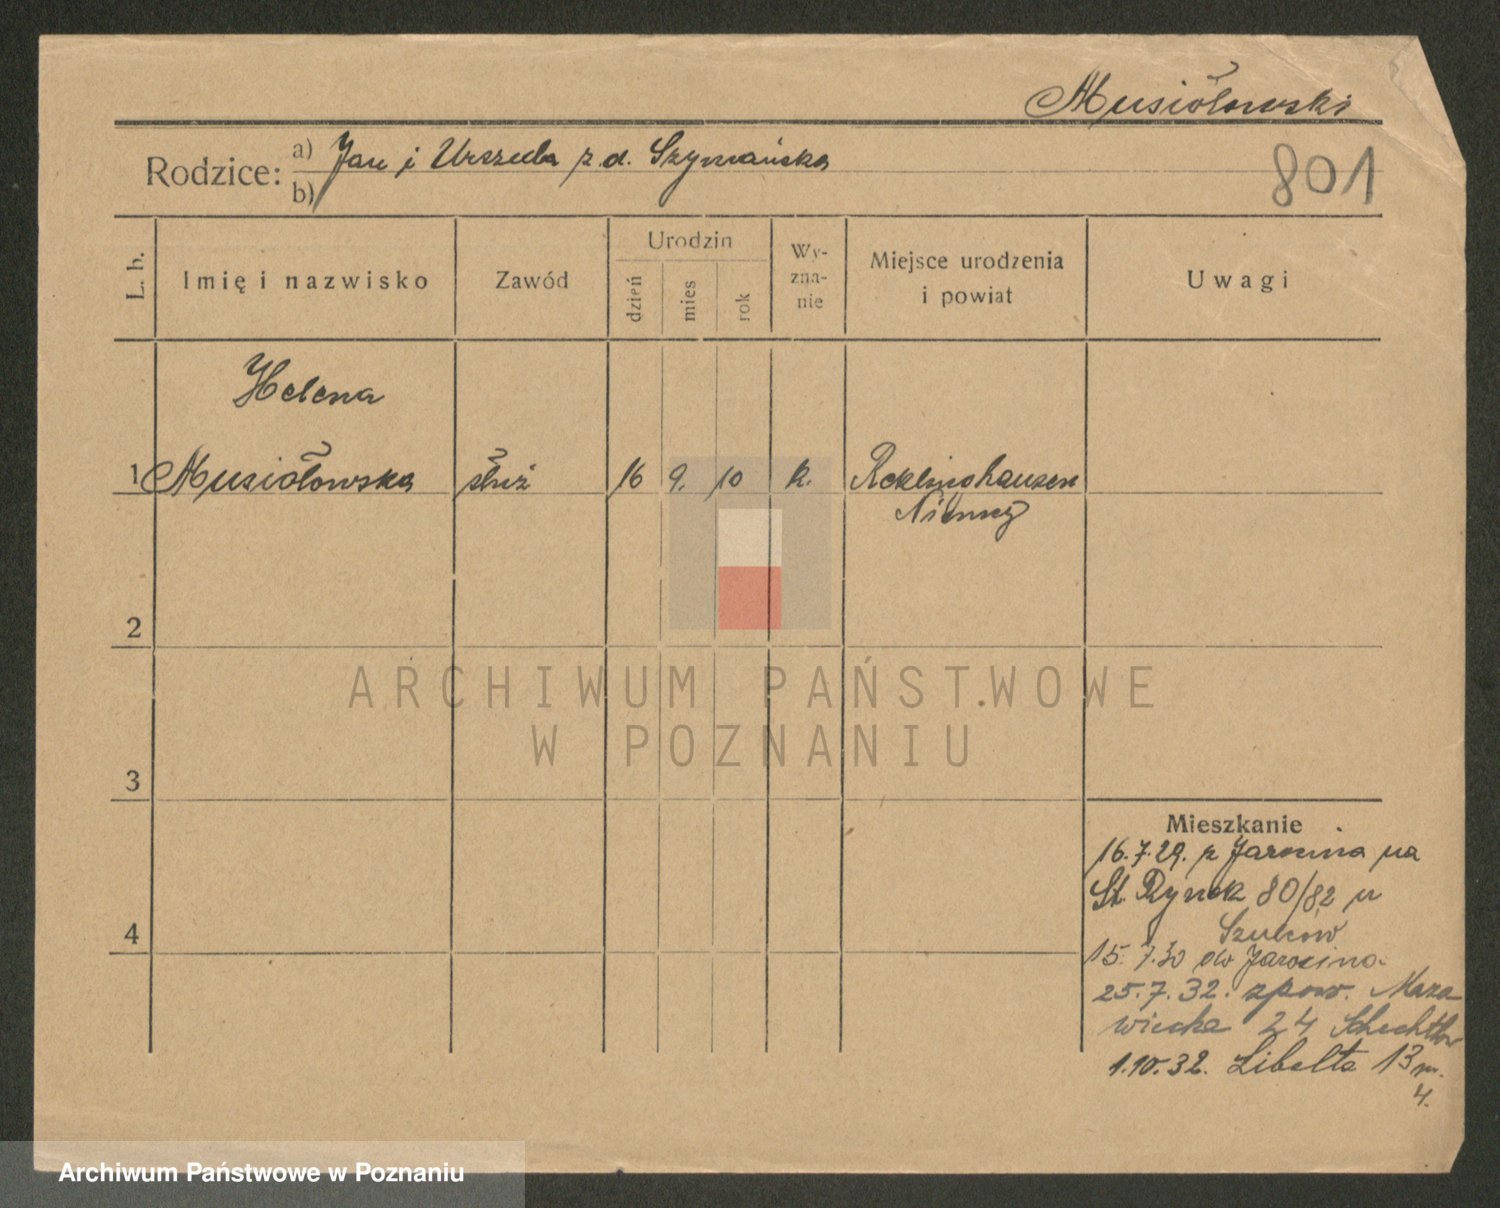 Musiołowski
Rodzice: a) Jan i Urszula z d. Szymańska
b)
801
L. b.
Imię i nazwisko
Zawód
Urodzin
dzień
mies
rok
Wy-
zna-
nie
Miejsce urodzenia
i powiat
Uwagi
Helena
1 Musiołowska służ 16 9. 10 k. Reklinghausen
Niemcy
2
3
4
Mieszkanie
16.7.29. z Jarocina na
St. Rynek 80/82 u
15. 7.30 do Jarocina
25.7.32. zpow. Mazo
wiecka 24
1.10.32. Libelta 13 m.
4.
ARCHIWUM PAŃSTWOWE
W POZNANIU
Archiwum Państwowe w Poznaniu